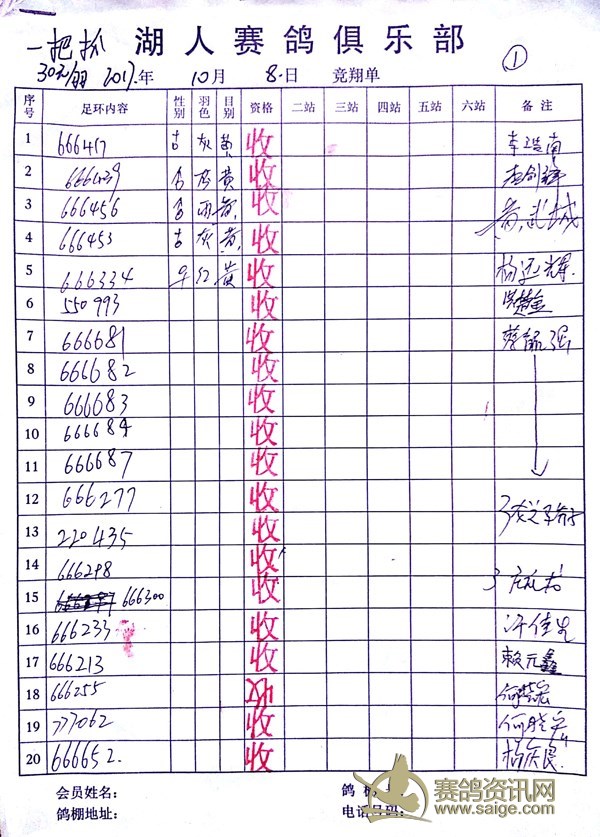 一把抓 湖人赛鸽俱乐部 ①
30元/羽 2017年 10月 8日 竞翔单
序号 足环内容 性别 羽色 目别 资格 二站 三站 四站 五站 六站 备注
1 666417 灰 黄 收
2 666439 灰 黄 收
3 666456 雨 黄 收 黄武城
4 666453 灰 黄 收
5 666334 平 红 黄 收 杨 辉
6 550993 收
7 666681 收
8 666682 收
9 666683 收
10 666684 收
11 666687 收
12 666277 收
13 220435 收
14 666298 收
15 666300 收
16 666233 收 许佳
17 666213 收 赖元鑫
18 666255 收
19 777062 收
20 666652 收 杨庆良
会员姓名: 鸽
鸽棚地址: 电话号码:
赛鸽资讯网
www.saige.com